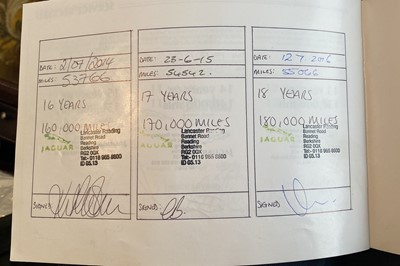 DATE: 2/07/2014
MILES: 53766
16 YEARS
160,000 MILES
Lancaster Reading
Bennet Road
Reading
Berkshire
RG2 0QX
Tel:- 0118 965 8600
ID 05.13
JAGUAR
SIGNED:
DATE: 23-6-15
MILES: 54542.
17 YEARS
170,000 MILES
Lancaster Reading
Bennet Road
Reading
Berkshire
RG2 0QX
Tel:- 0118 965 8600
ID 05.13
JAGUAR
SIGNED:
DATE: 12 7 2016
MILES: 55066
18 YEARS
180,000 MILES
Lancaster Reading
Bennet Road
Reading
Berkshire
RG2 0QX
Tel:- 0118 965 8600
ID 05.13
JAGUAR
SIGNED: